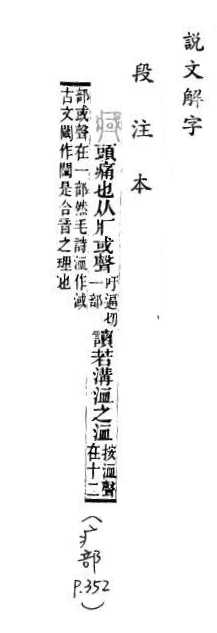 説文解字
段注本
頭痛也从疒或聲吁逼切一部讀若溝洫之洫按洫聲在十二
部或聲在一部然毛詩洫作淢
古文閾作𨵦是合音之理也
(疒部 P.352)